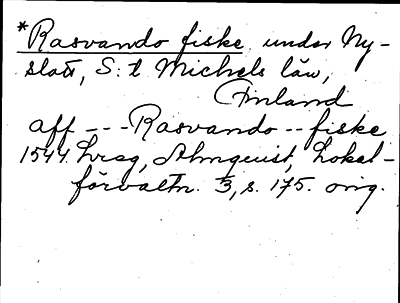 *Rasvando fiske under Ny-
slott, S:t Michels län,
Finland
aff --- Rasvando -- fiske
1544. hrsg, Almquist, Lokal-
förvaltn. 3, s. 175. orig.